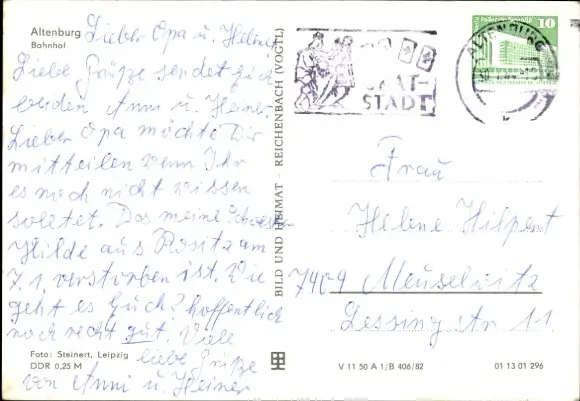 Altenburg
Bahnhof
Lieber Opa u. Helene
Liebe Grüße sendet Euch
beiden Anni u. Heiner.
Lieber Opa möchte Dir
mitteilen wenn Ihr
es noch nicht wissen
solltet. Das meine Schwester
Hilde aus Rositz am
7.1. verstorben ist. Wie
geht es Euch? hoffentlich
noch recht gut. Viele
liebe Grüße
von Anni u. Heiner
Foto: Steinert, Leipzig
DDR 0,25 M
BILD UND HEIMAT · REICHENBACH (VOGTL)
SKAT-
STADT
ALTENBURG
10
Frau
Helene Hilpert
7404 Meuselwitz
Lessing Str 11
V 11 50 A 1/B 406/82
01 13 01 296